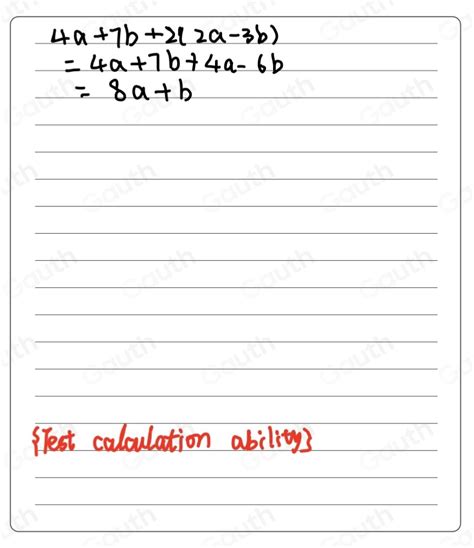 4a+7b+2(2a-3b)
=4a+7b+4a-6b
= 8a+b
{Test calculation ability}